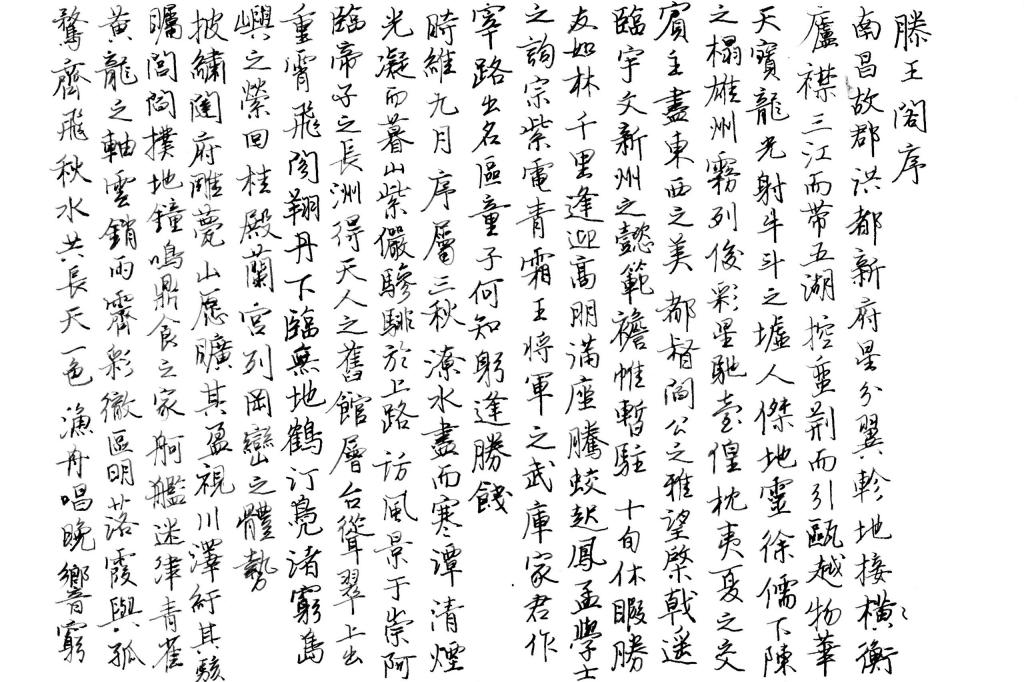 滕王閣序
南昌故郡洪都新府星分翼軫地接橫衡
廬襟三江而帶五湖控蠻荆而引甌越物華
天寶龍光射牛斗之墟人傑地靈徐儒下陳
之榻雄州霧列俊彩星馳臺隍枕夷夏之交
賓主盡東西之美都督閻公之雅望棨戟遥
臨宇文新州之懿範襜帷暫駐十旬休暇勝
友如林千里逢迎高朋滿座騰蛟起鳳孟學士
之詞宗紫電青霜王將軍之武庫家君作
宰路出名區童子何知躬逢勝餞
時維九月序屬三秋潦水盡而寒潭清煙
光凝而暮山紫儼驂騑於上路訪風景于崇阿
臨帝子之長洲得天人之舊館層台聳翠上出
重霄飛閣翔丹下臨無地鶴汀鳧渚窮島
嶼之縈回桂殿蘭宮列岡巒之體勢
披繡闥府雕甍山愿曠其盈視川澤紆其駭
矚閭閻撲地鐘鳴鼎食之家舸艦迷津青雀
黃龍之軸雲銷雨霽彩徹區明落霞與孤
鶩齊飛秋水共長天一色漁舟唱晚響窮